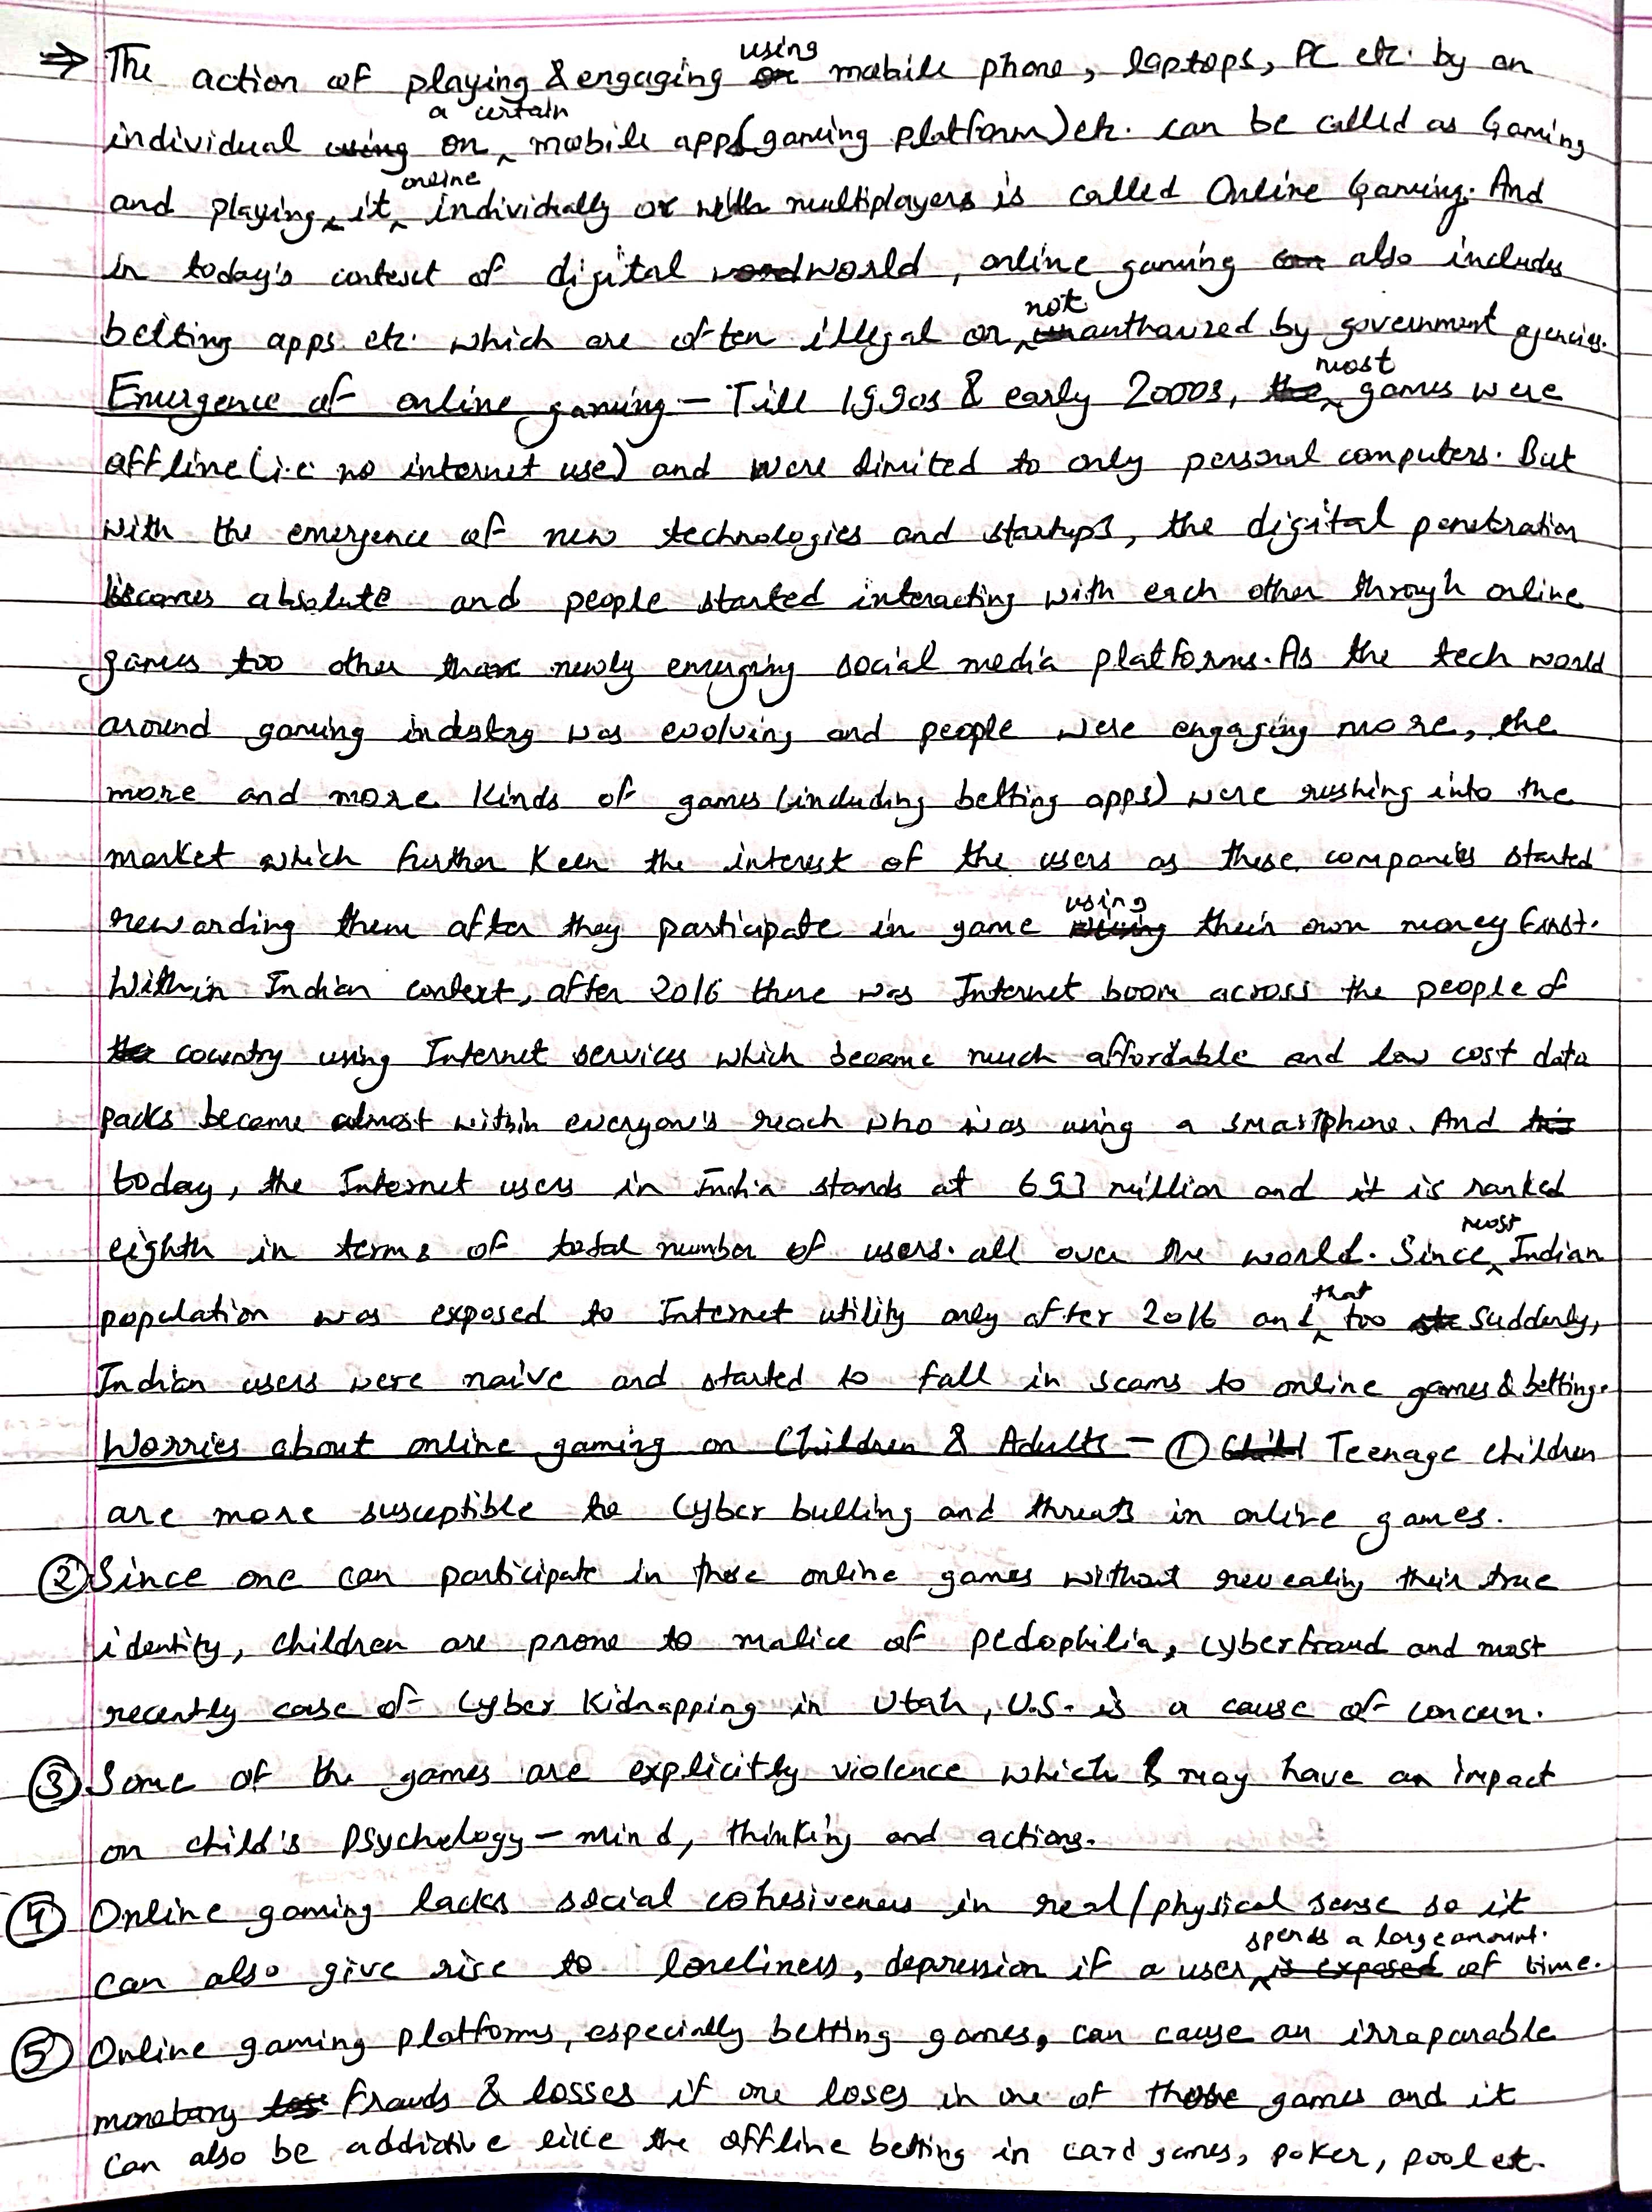 ⇒ The action of playing & engaging using mobile phone, laptops, PC etc. by an
individual on a certain mobile apps (gaming platform) etc. can be called as Gaming
and playing it online individually or with multiplayers is called Online Gaming. And
in today's context of digital world, online gaming also includes
betting apps. etc. which are often illegal or not authorized by government agencies.
Emergence of online gaming - Till 1990s & early 2000s, most games were
offline (i.e. no internet use) and were limited to only personal computers. But
with the emergence of new technologies and startups, the digital penetration
becomes absolute and people started interacting with each other through online
games too other than newly emerging social media platforms. As the tech world
around gaming industry was evolving and people were engaging more, the
more and more kinds of games (including betting apps) were rushing into the
market which further keen the interest of the users as these companies started
rewarding them after they participate in game using their own money first.
Within Indian context, after 2016 there was Internet boom across the people of
country using Internet services which became much affordable and low cost data
packs became almost within everyone's reach who was using a smartphone. And
today, the Internet users in India stands at 693 million and it is ranked
eighth in terms of total number of users. all over the world. Since most Indian
population was exposed to Internet utility only after 2016 and that too suddenly,
Indian users were naive and started to fall in scams to online games & betting.
Worries about online gaming on Children & Adults - ① Teenage children
are more susceptible to Cyber bulling and threats in online games.
② Since one can participate in these online games without revealing their true
identity, children are prone to malice of pedophilia, cyberfraud and most
recently case of Cyber Kidnapping in Utah, U.S. is a cause of concern.
③ Some of the games are explicitly violence which may have an impact
on child's psychology - mind, thinking and actions.
④ Online gaming lacks social cohesiveness in real/physical sense so it
can also give rise to loneliness, depression if a user spends a large amount. of time.
⑤ Online gaming platforms, especially betting games, can cause an irraparable
monetary frauds & losses if one loses in one of those games and it
can also be addictive like the offline betting in card games, poker, pool etc.